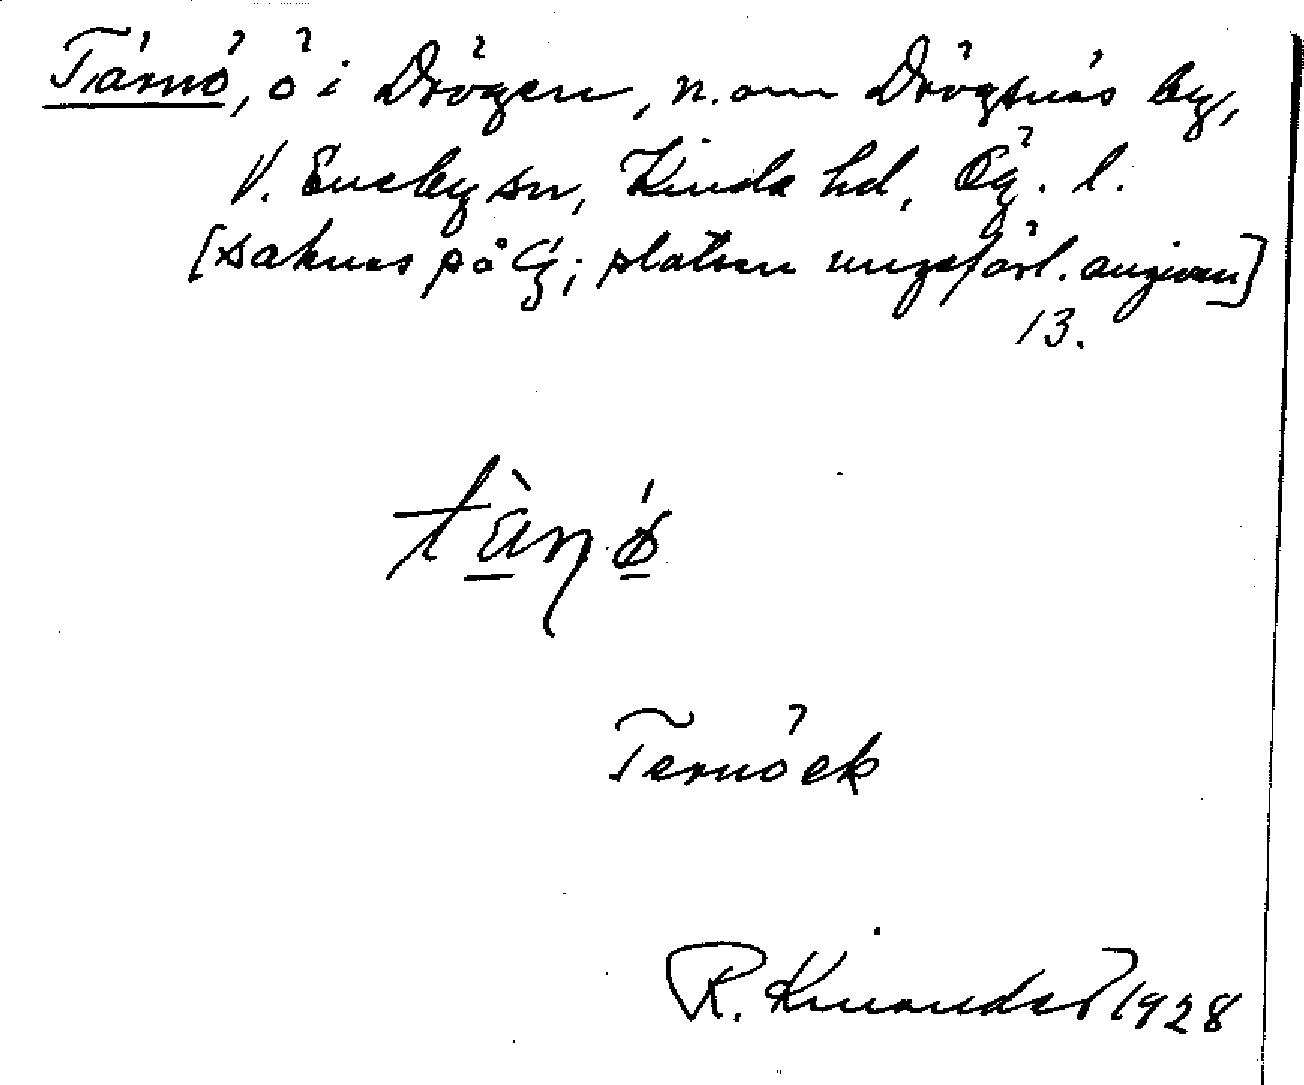 Tärnö, ö i Drögen, n. om Drögsnäs by,
V. Eneby sn, Kinda hd, Ög. l.
[saknas på G; platsen ungefärl. angiven]
13.
Ternö ek
R. Kinander 1928